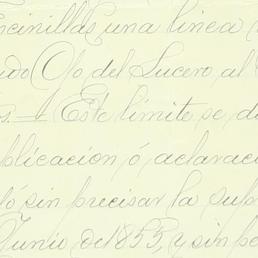 encinillas una linea
ido Ojo del Sucero, al
os. — Este limite se d
blicacion ó aclaraci
ló sin precisar la sup
Junio de 1855, y sin pe